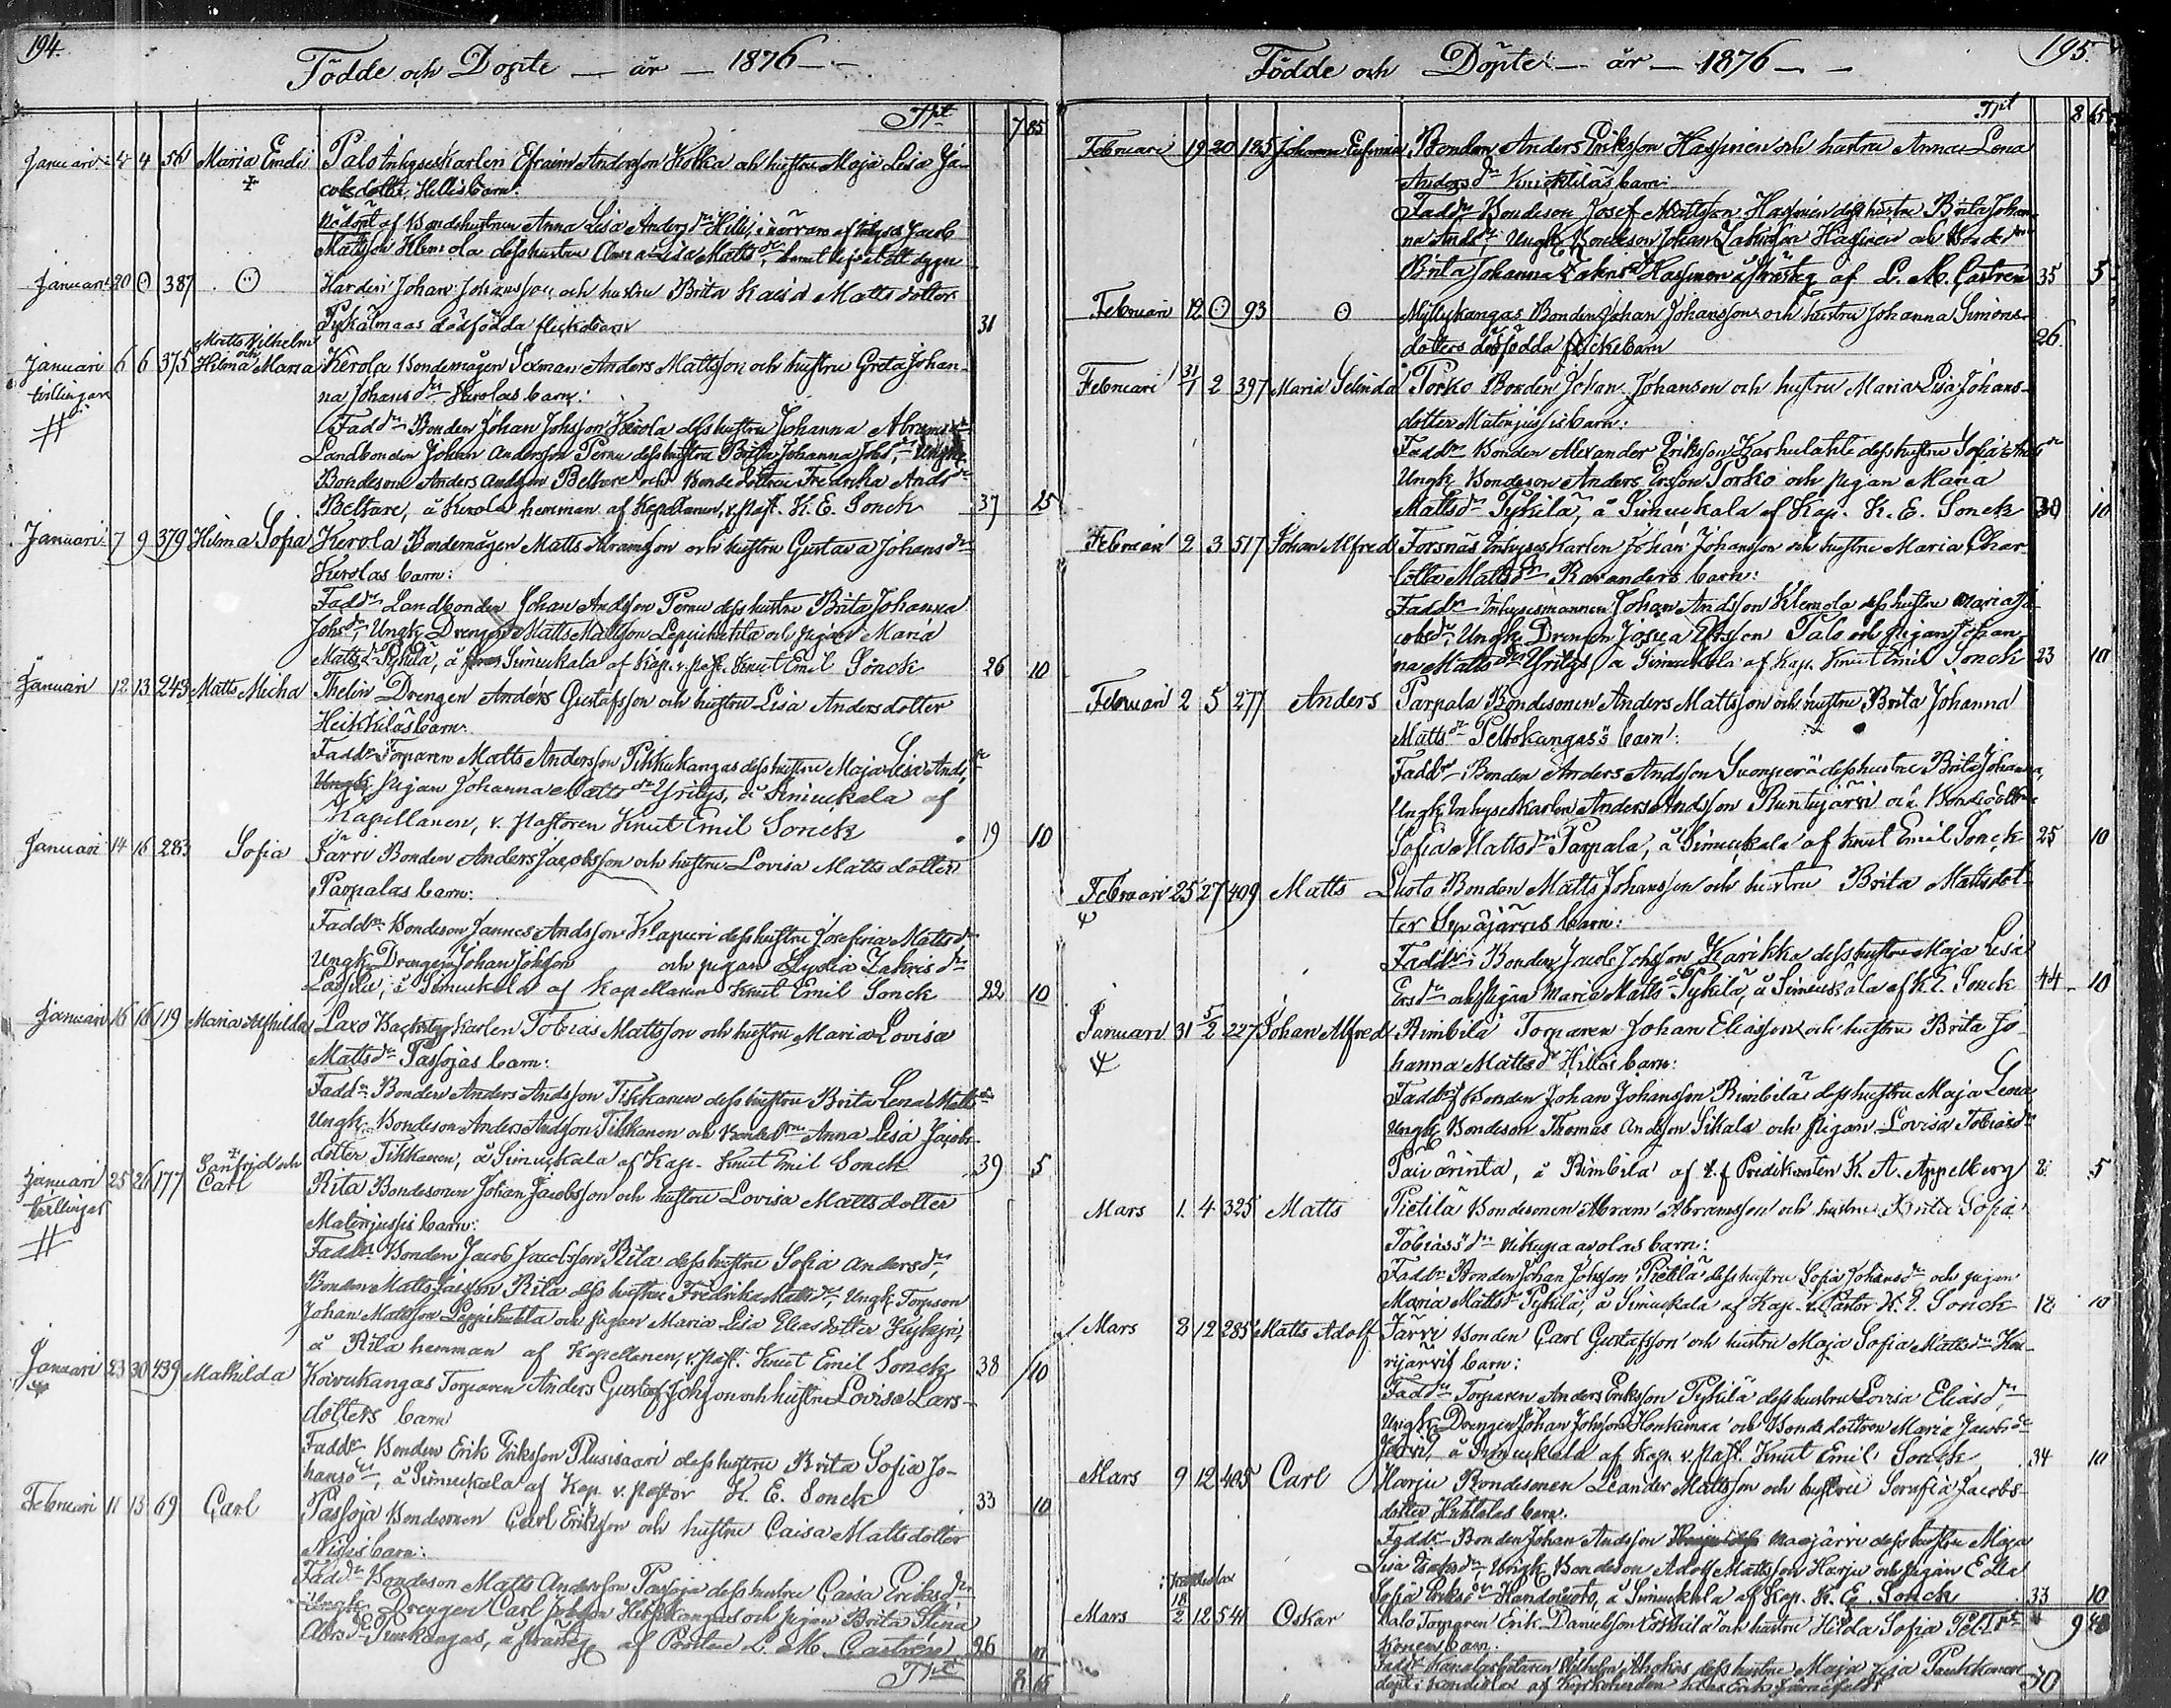 194.
Födde och Döpte — år — 1876 — —
Tpt 7 85
Januari 4 4 56 Maria Emili Palo Inhyseskarlen Efraim Andersson Kokka och hustru Maja Lisa Ja-
cobsdotter Hillis barn:
Nöddöpt af Bondehustrun Anna Lisa Andersdr Hilli, i närvaro af Inhyses Jacob
Mattsson Klemola dess hustru Anna Lisa Mattsdr,
Januari 20 ʘ 387 ʘ Hardin Johan Johansson och hustru Brita Kaisa Mattsdotter
Pykälmaas dödfödda flickebarn 31
Matts Vilhelm
och
Januari 6 6 375 Hilma Maria Kerola Bondemågen Sexman Anders Mattsson och hustru Greta Johan-
tvillingar na Johansdr Kerolas barn:
Faddr Bonden Johan Johsson Kerola dess hustru Johanna Abramsdr
Landbonden Johan Andersson Pernu dess hustru Brita Johanna Johsdr, Ungk.
Bondeson Anders Andsson Beltare och Bondedottren Fredrika Andsdr
Beltare, å Kerola hemman af Kapellanen, v. past. K. E. Sonck 37 25
Januari 7 9 379 Hilma Sofia Kerola Bondemågen Matts Abramsson och hustru Gustava Johansdr
Kerolas barn:
Faddr Landbonden Johan Andsson Pernu dess hustru Brita Johanna
Johsdr, Ungk. Drengen Matts Mattsson Leppihuhta och pigan Maria
Mattsdr Pykilä, å Simukala af Kap. v. past. Knut Emil Sonck 26 10
Januari 12 13 243 Matts Micha Thelin Drengen Anders Gustafsson och hustru Lisa Andersdotter
Heikkiläs barn:
Faddr Torparen Matts Andersson Pihkukangas dess hustru Maja Lisa Andsdr
Ungk. pigan Johanna Mattsdr Yritys, å Simukala af
Kapellanen, v. pastoren Knut Emil Sonck 19 10
Januari 14 16 283 Sofia Järvi Bonden Anders Jacobsson och hustru Lovisa Mattsdotter
Parpalas barn:
Faddr Bondeson Jannes Andsson Klapuri dess hustru Josefina Mattsdr
Ungk. Drengen Johan Johsson och pigan Lydia Zakrisdr
Lassila, å Simukala af Kapellanen Knut Emil Sonck 22 10
Januari 16 16 119 Maria Alfhilda Laxo Backstugkarlen Tobias Mattsson och hustru Maria Lovisa
Mattsdr Passojas barn:
Faddr Bonden Anders Andsson Tikkanen dess hustru Brita Lena Mattsdr
Ungk. Bondeson Anders Andsson Tikkanen och Bondedtrn Anna Lisa Jacobs-
dotter Tikkanen, å Simukala af Kap. Knut Emil Sonck 39 5
Januari 25 26 177 Sanfrid och
Carl Rita Bondesonen Johan Jacobsson och hustru Lovisa Mattsdotter
tvillingar Matinjussis barn:
Faddr Bonden Jacob Jacobsson Rita dess hustru Sofia Andersdr,
Bonden Matts Jacsson Rita dess hustru Fredrika Mattsdr, Ungk. Torpson
Johan Mattsson Leppihuhta och pigan Maria Lisa Eliasdotter Kykyri,
å Rita hemman af Kapellanen, v. past. Knut Emil Sonck 38 10
Januari 23 30 439 Mathilda Koivukangas Torparen Anders Gustaf Johsson och hustru Lovisa Lars-
dotters barn
Faddr Bonden Erik Eriksson Plusisaari dess hustru Brita Sofia Jo-
hansdr, å Simukala af Kap. v. pastor K. E. Sonck 33 10
Februari 11 13 69 Carl Passoja Bondesonen Carl Eriksson och hustru Caisa Mattsdotter
Nissis barn:
Faddr Bondeson Matts Andersson Passoja dess hustru Caisa Eriksdr
Ungk. Drengen Carl Johsson Heikkangas och pigan Brita Stina
Abrsdr Purkangas, å prästg. af Pastor L. M. Castrén 26
Tpt 8 65
195.
Födde och Döpte — år — 1876 — —
Tpt 8 65
Februari 19 20 125 Johanna Eufemia Bonden Anders Eriksson Hassinen och hustru Anna Lena
Andersdr Knicktiläs barn:
Faddr Bondeson Josef Mattsson Hassinen dess hustru Brita Johan-
na Andsdr Ungk. Bondeson Johan Zakrisson Hassinen och Bondedtrn
Brita Johanna Zakrisdr Hassinen å prästg. af L. M. Castrén 35 5
Februari 12 ʘ 93 ʘ Myllykangas Bonden Johan Johansson och hustru Johanna Simons-
dotters dödfödda flickebarn 26
Februari 31/1 2 397 Maria Selinda Porko Bonden Johan Johansson och hustru Maria Lisa Johans-
dotter Matinjussis barn:
Faddr Bonden Alexander Eriksson Karhulahti dess hustru Sofia Andsdr
Ungk. Bondeson Anders Ersson Porko och pigan Maria
Mattsdr Pykilä, å Simukala af Kap. K. E. Sonck 30 10
Februari 2 3 517 Johan Alfred Forsnäs Inhyseskarlen Johan Johansson och hustru Maria Char-
lotta Mattsdr Ravanders barn:
Faddr Inhysesmannen Johan Andsson Klemola dess hustru Maria Ja-
cobsdr, Ungk. Drengen Josua Ersson Palo och pigan Johan-
na Mattsdr Yritys, å Simukala af Kap. Knut Emil Sonck 23 10
Februari 2 5 277 Anders Parpala Bondesonen Anders Mattsson och hustru Brita Johanna
Mattsdr Peltokangas's barn:
Faddr Bonden Anders Andsson Suonperä dess hustru Brita Johanna,
Ungk. Inhyseskarlen Anders Andsson Runtujärvi och Bondedottren
Sofia Mattsdr Parpala, å Simukala af Knut Emil Sonck 25 10
Februari 25 27 409 Matts Luoto Bonden Matts Johansson och hustru Brita Mattsdot-
ter Syväjärvis barn:
Faddr Bonden Jacob Johsson Karikka dess hustru Maja Lisa
Ersdr och pigan Maria Mattsdr Pykilä, å Simukala af K. E. Sonck 44 10
Januari 31 5/2 227 Johan Alfred Rimbilä Torparen Johan Eliasson och hustru Brita Jo-
hanna Mattsdr Hillis barn:
Faddr Bonden Johan Johansson Rimbilä dess hustru Maja Lena
Ungk. Bondeson Thomas Andsson Sikala och pigan Lovisa Tobiasdr
Paivärinta, å Rimbilä af v. f. Predikanten K. A. Appelberg 2 5
Mars 1 4 325 Matts Pietilä Bondesonen Abram Abramsson och hustru Brita Sofia
Tobiasdr Nikupaavolas barn:
Faddr Bonden Johan Johsson Pietilä dess hustru Sofia Johansdr och pigan
Maria Mattsdr Pykilä, å Simukala af Kap. v. Pastor K. E. Sonck 12 10
Mars 8 12 285 Matts Adolf Järvi Bonden Carl Gustafsson och hustru Maja Sofia Mattsdr Kou-
rijärvis barn:
Faddr Torparen Anders Eriksson Pykilä dess hustru Lovisa Eliasdr,
Ungk. Drengen Johan Johsson Honkimaa och Bondedottren Maria Jacobsdr
Järvi, å Simukala af Kap. v. past. Knut Emil Sonck 34 10
Mars 9 12 405 Carl Harju Bondesonen Leander Mattsson och hustru Serafia Jacobs-
dotter Huhtalas barn:
Faddr Bonden Johan Andsson Vaajärvi dess hustru Maja
Lisa Isaksdr Ungk. Bondeson Adolf Mattsson Harju och pigan Edla
Sofia Eriksdr Handoluoto, å Simukala af Kap. K. E. Sonck 33 10
Mars 18/2 12 541 Oskar Kalo Torparen Erik Danielsson Erkkilä och hustru Hilda Sofia Pel- Tpt 9
konen barn.
Faddr Vilhelm Ahokas dess hustru Maja Lisa Paukkonen
döpt i Kondilax af Kyrkoherden Klas Erik Järnefelt 30